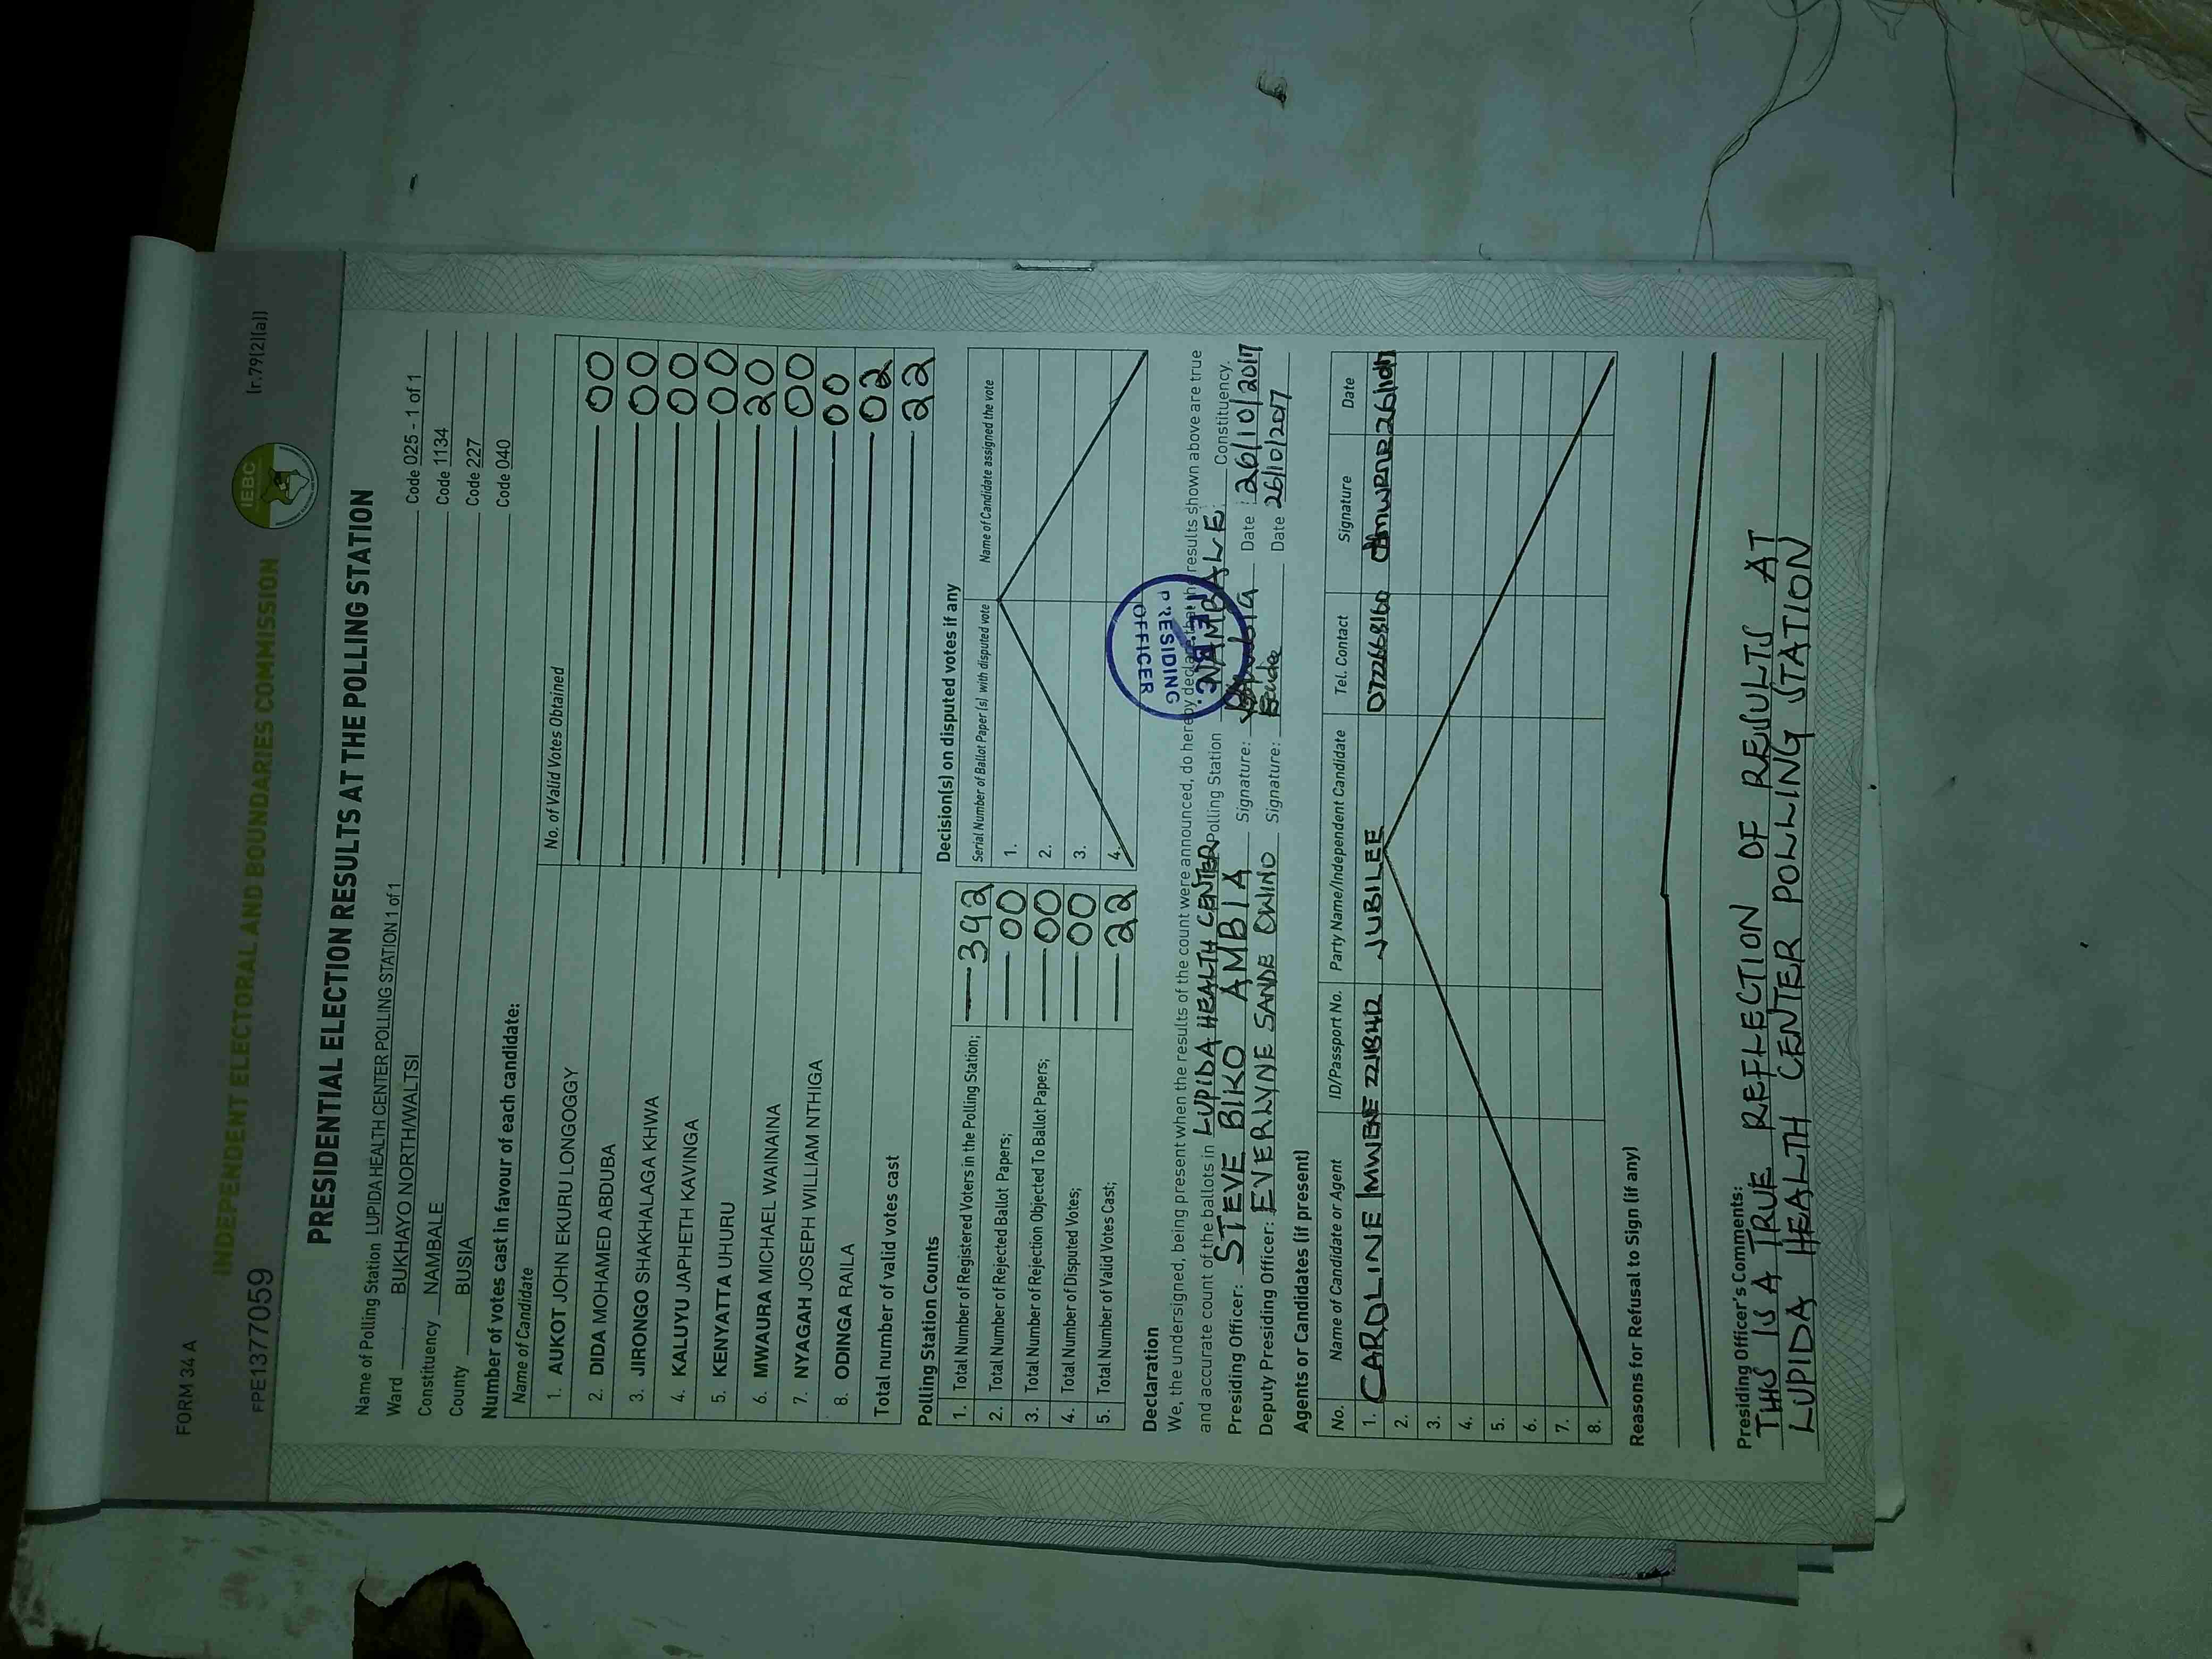 FORM 34 A
FPE1377059
INDEPENDENT ELECTORAL AND BOUNDARIES COMMISSION
IEBC
(r.79(2)(a))
PRESIDENTIAL ELECTION RESULTS AT THE POLLING STATION
Name of Polling Station LUPIDA HEALTH CENTER POLLING STATION 1 of 1 Code 025 - 1 of 1
Ward BUKHAYO NORTH/WALTSI Code 1134
Constituency NAMBALE Code 227
County BUSIA Code 040
Number of votes cast in favour of each candidate:
Name of Candidate No. of Valid Votes Obtained
1. AUKOT JOHN EKURU LONGOGGY 00
2. DIDA MOHAMED ABDUBA 00
3. JIRONGO SHAKHALAGA KHWA 00
4. KALUYU JAPHETH KAVINGA 00
5. KENYATTA UHURU 20
6. MWAURA MICHAEL WAINAINA 00
7. NYAGAH JOSEPH WILLIAM NTHIGA 00
8. ODINGA RAILA 02
Total number of valid votes cast 22
Polling Station Counts
1. Total Number of Registered Voters in the Polling Station; 392
2. Total Number of Rejected Ballot Papers; 00
3. Total Number of Rejection Objected To Ballot Papers; 00
4. Total Number of Disputed Votes; 00
5. Total Number of Valid Votes Cast; 22
Decision(s) on disputed votes if any
Serial Number of Ballot Paper (s) with disputed vote Name of Candidate assigned the vote
1.
2.
3.
4.
Declaration
We, the undersigned, being present when the results of the count were announced, do hereby declare that the results shown above are true
and accurate count of the ballots in LUPIDA HEALTH CENTER Polling Station NAMBALE Constituency.
Presiding Officer: STEVE BIKO AMBIA Signature: Date : 26/10/2017
Deputy Presiding Officer: EVERLYNE SANDE OWINO Signature: Date 26/10/2017
PRESIDING
OFFICER
Agents or Candidates (if present)
No. Name of Candidate or Agent ID/Passport No. Party Name/Independent Candidate Tel. Contact Signature Date
1. CAROLINE JUBILEE
2.
3.
4.
5.
6.
7.
8.
Reasons for Refusal to Sign (if any)
Presiding Officer's Comments:
THIS IS A TRUE REFLECTION OF RESULTS AT
LUPIDA HEALTH CENTER POLLING STATION